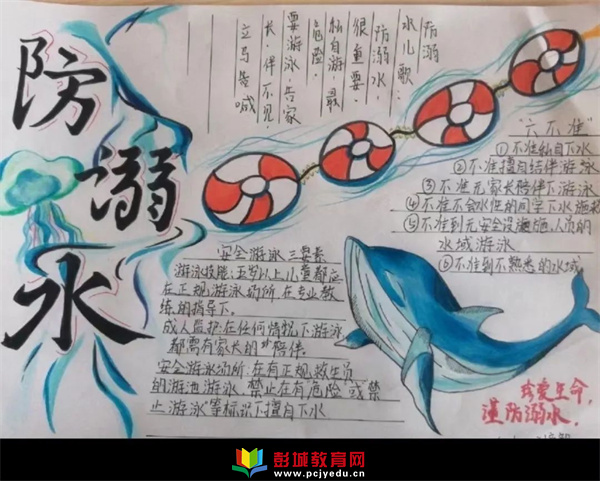 防溺水
防溺
水儿歌:
防溺水
很重要.
私自游最
危险.
要游泳告家
长.伴不见
立马告喊
"六不准"
①不准私自下水
②不准擅自结伴游泳
③不准无家长陪伴下游泳
④不准不会水性的同学下水施救
⑤不准到无安全设施,人员的
水域游泳
⑥不准到不熟悉的水域
安全游泳三要素
游泳技能:五岁以上儿童都应
在正规游泳场所,在专业教
练的指导下。
成人监护:在任何情况下游泳
都需有家长的陪伴。
安全游泳场所:在有正规救生员
的游池游泳,禁止在有危险或禁
止游泳等标识下擅自下水
珍爱生命,
谨防溺水.
彭城教育网
www.pcjyedu.cn